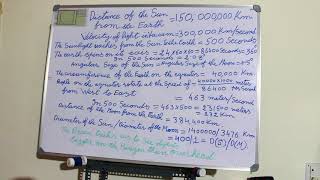 Distance of the Sun = 150,000,000 Km
from the Earth
Velocity of light in vacuum = 300,000 Km/Second
The Sunlight reaches from the Sun to the Earth = 500 Seconds
The Earth spins on its axis = 24×60×60 = 86400 Seconds 360
In 500 Seconds = 2.08
Angular Size of the Sun = Angular Size of the Moon = 0.5°
The circumference of the Earth on the equator = 40,000 Km
on the equator rotates at the speed of = 40000×1000 meters/second
86400
From West to East = 463 meter/second
In 500 Seconds = 463×500 = 231500 meters
= 231.500 Km
Distance of the Moon from the Earth = 384,400 Km
Diameter of the Sun/Diameter of the Moon = 1400000/3476 Km
= 400/1 = D(S)/D(M)
The Moon us to be
bigger on the than overhead